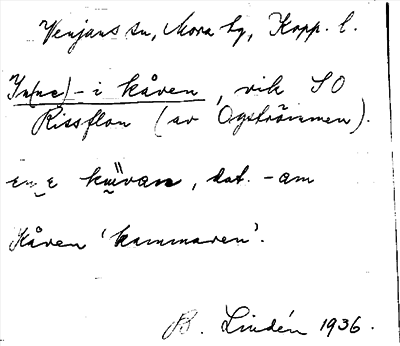 Venjans sn, Mora tg, Kopp. l.
In(ne)- i kåven, vik SO
Rissflon (av Ogströmmen).
kåvan, dat. -am
Kåven 'kammaren'.
B. Lindén 1936.